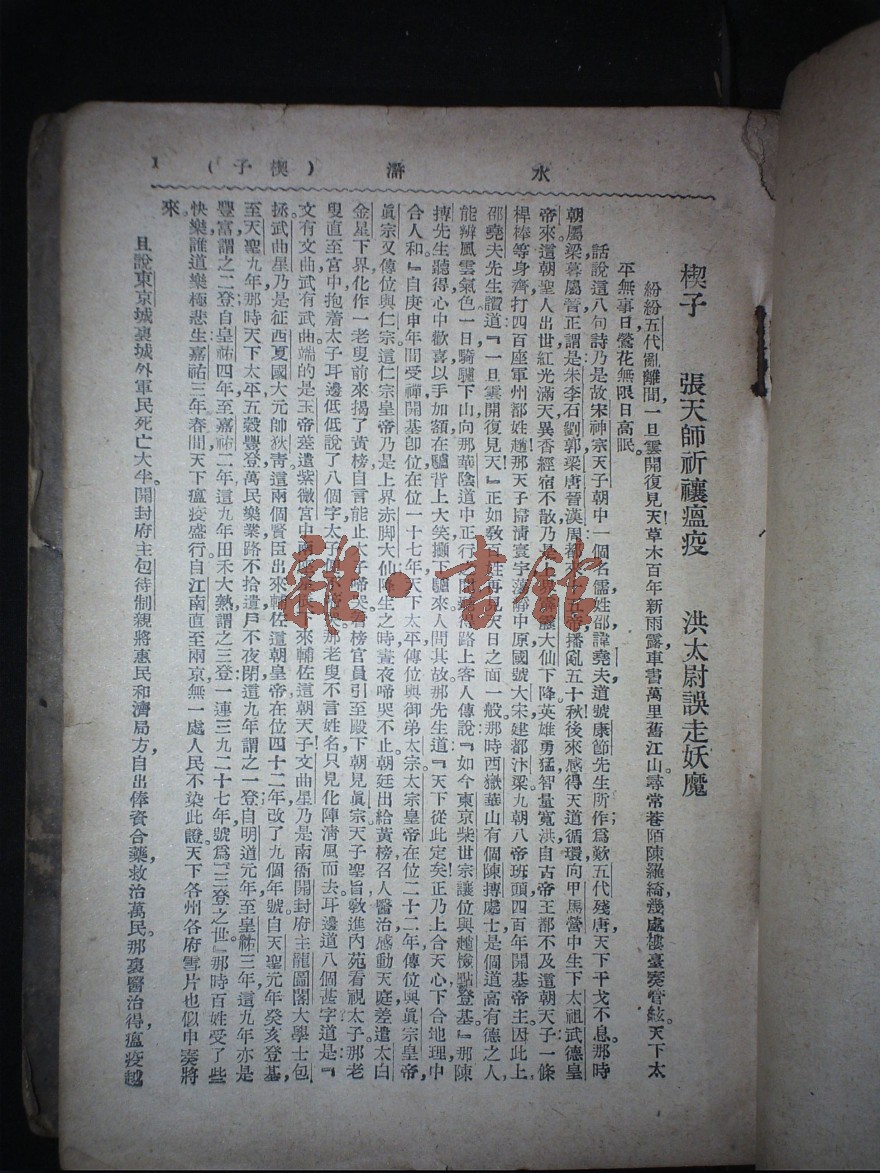 水滸 （楔子） 1
楔子 張天師祈禳瘟疫 洪太尉誤走妖魔
紛紛五代亂離間，一旦雲開復見天草木百年新雨露，車書萬里舊江山，尋常巷陌陳羅綺，幾處樓臺奏管絃。天下太
平無事日，鶯花無限日高眠。
話說這八句詩，乃是故宋神宗天子朝中一個名儒，姓邵諱堯夫，道號康節先生所作，爲歎五代殘唐，天下干戈不息，那時
朝屬梁，暮屬晉，正謂是朱李石劉郭，梁唐晉漢周，都來 五帝，播亂五十秋，後來感得天道循環，向甲馬營中生下太祖武德皇
帝來，這朝聖人出世，紅光滿天，異香經宿不散，乃是上 霹靂大仙下降，英雄勇猛，智量寬洪，自古帝王都不及這朝天子，一條
桿棒等身齊，打四百座軍州都姓趙，那天子掃清寰宇，蕩靜中原，國號大宋，建都汴梁，九朝八帝班頭，四百年開基帝主，因此上
邵堯夫先生讚道，『一旦雲開復見天』正如教百姓再見天日之面一般，那時西嶽華山有個陳摶處士，是個道高有德之人，
能辨風雲氣色，一日騎驢下山，向那華陰道中正行 聽得路上客人傳說，『如今東京柴世宗讓位與趙檢點登基』那陳
摶先生聽得，心中歡喜，以手加額，在驢背上大笑，攧下驢來，人問其故，那先生道，『天下從此定矣，正乃上合天心，下合地理，中
合人和』自庚申年間受禪，開基卽位，在位一十七年，天下太平，傳位與御弟太宗，太宗皇帝在位二十二年，傳位與眞宗皇帝，
眞宗又傳位與仁宗，這仁宗皇帝，乃是上界赤脚大仙，降生之時，晝夜啼哭不止，朝廷出給黃榜，召人醫治，感動天庭，差遣太白
金星下界，化作一老叟，前來揭了黃榜，自言能止太子啼哭，看榜官員引至殿下，朝見眞宗，天子聖旨，敎進內苑看視太子，那老
叟直至宮中，抱着太子，耳邊低低說了八個字，太子便不 那老叟不言姓名，只見化陣淸風而去，耳邊道八個甚字，道是『
文有文曲，武有武曲』端的是玉帝差遣紫微宮中兩 來輔佐這朝天子，文曲星乃是南衙開封府主龍圖閣大學士包
拯，武曲星乃是征西夏國大元帥狄靑，這兩個賢臣，出來輔佐這朝皇帝，在位四十二年，改了九個年號，自天聖元年癸亥登基，
至天聖九年，那時天下太平，五穀豐登，萬民樂業，路不拾遺，戶不夜閉，這九年謂之一登，自明道元年至皇祐三年，這九年亦是
豐富，謂之二登，自皇祐四年至嘉祐二年，這九年田禾大熟，謂之三登，一連三九二十七年，號爲『三登之世』那時百姓受了些
快樂，誰道樂極悲生，嘉祐三年春間，天下瘟疫盛行，自江南直至兩京，無一處人民不染此證，天下各州各府，雪片也似申奏將
來。
且說東京城裏城外，軍民死亡大半。開封府主包待制親將惠民和濟局方，自出俸資合藥，救治萬民，那裏醫治得，瘟疫越
雜·書館